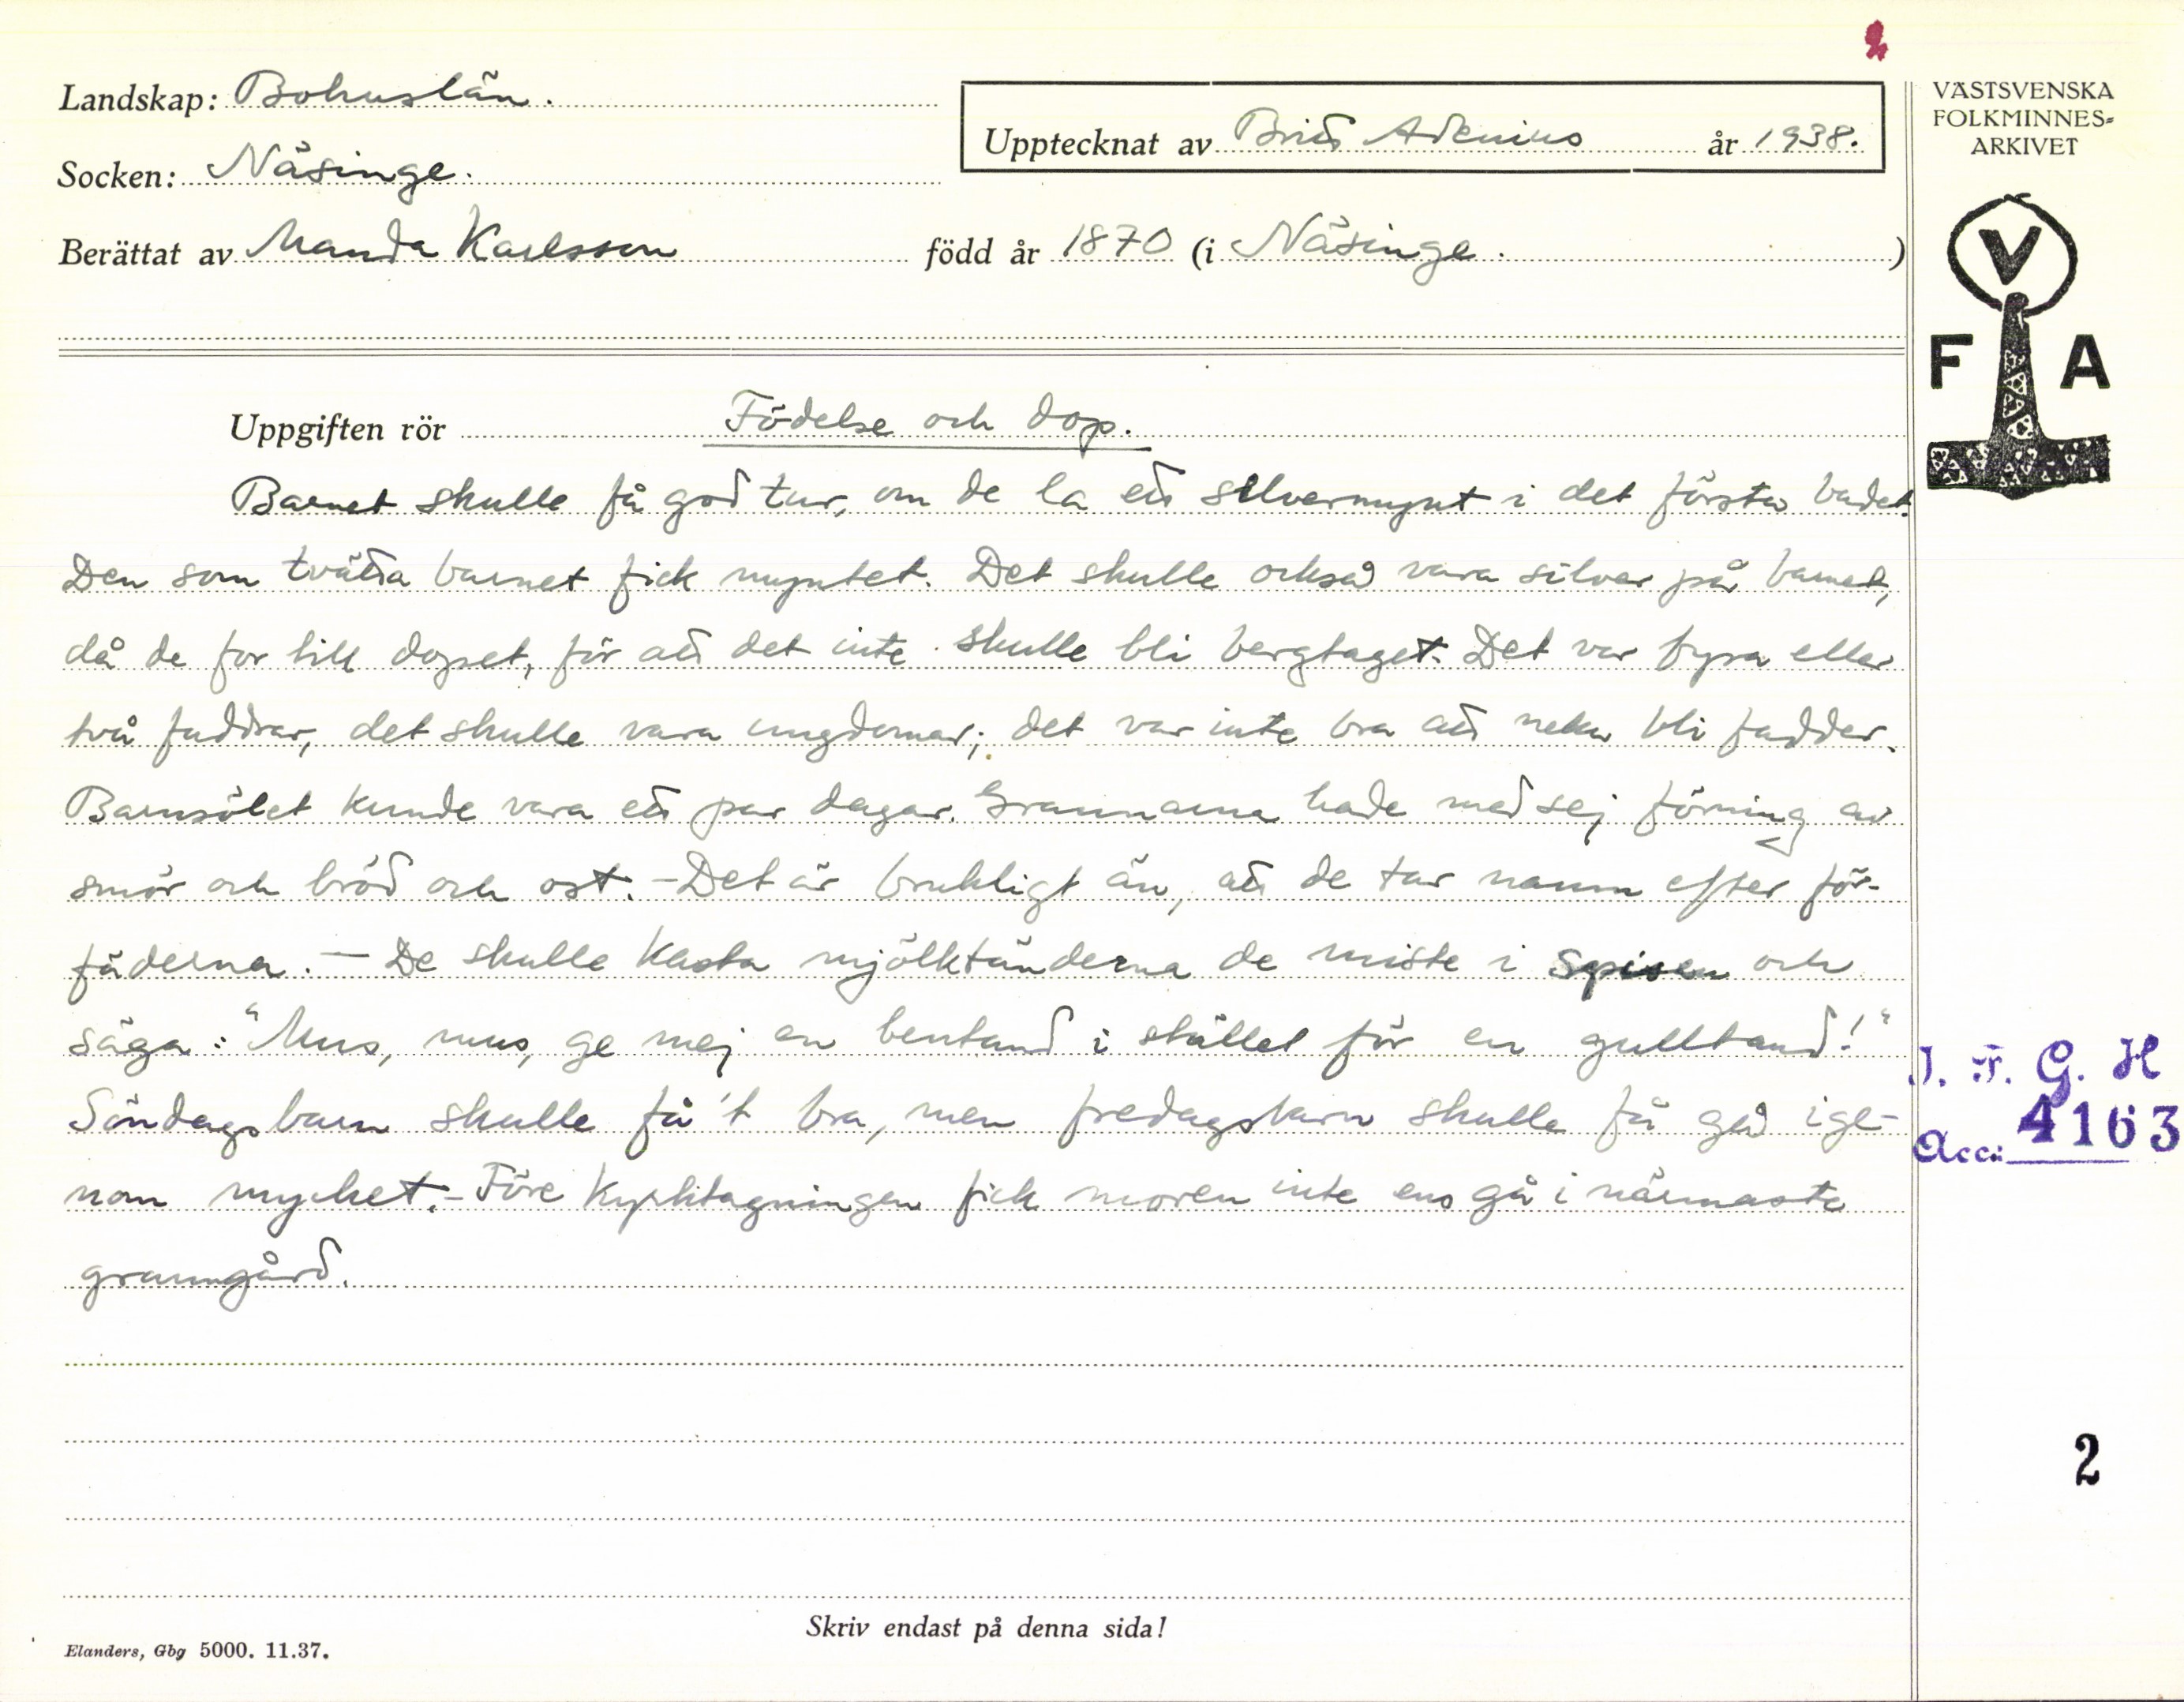 Landskap: Bohuslän.
Upptecknat av Britt Adenius år 1938.
VÄSTSVENSKA
FOLKMINNES-
ARKIVET
Socken: Näsinge.
Berättat av Manda Karlsson född år 1870 (i Näsinge. )
V
F A
Uppgiften rör Födelse och dop.
Barnet skulle få god tur, om de la ett silvermynt i det första badet.
Den som tvätta barnet fick myntet. Det skulle också vara silver på barnet,
då de for till dopet, för att det inte skulle bli bergtaget. Det var fyra eller
två faddrar, det skulle vara ungdomar; det var inte bra att neka bli fadder.
Barnsölet kunde vara ett par dagar. Grannarna hade med sej förning av
smör och bröd och ost. - Det är brukligt än, att de tar namn efter för-
fäderna. - De skulle kasta mjölktänderna de miste i spisen och
säga: "Mus, mus, ge mej en bentand i stället för en gulltand!"
Söndagsbarn skulle få't bra, men fredagsbarn skulle få gå ige-
nom mycket. - Före kyrktagningen fick moren inte ens gå i närmaste
granngård.
I. F. G. H
Acc: 4163
2
Skriv endast på denna sida!
Elanders, Gbg 5000. 11.37.